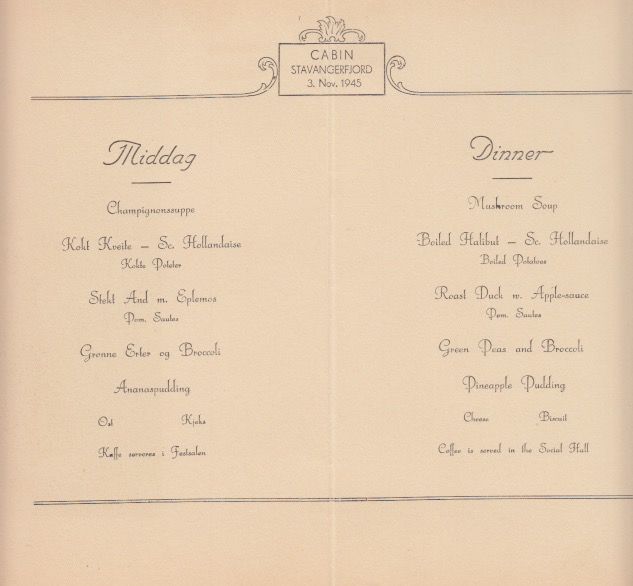 CABIN
STAVANGERFJORD
3. Nov. 1945
Middag
Champignonssuppe
Kokt Kveite — Sc. Hollandaise
Kokte Poteter
Stekt And m. Eplemos
Pom. Sautes
Grønne Erter og Broccoli
Ananaspudding
Ost Kjeks
Kaffe serveres i Festsalen
Dinner
Mushroom Soup
Boiled Halibut — Sc. Hollandaise
Boiled Potatoes
Roast Duck w. Apple-sauce
Pom. Sautes
Green Peas and Broccoli
Pineapple Pudding
Cheese Biscuit
Coffee is served in the Social Hall